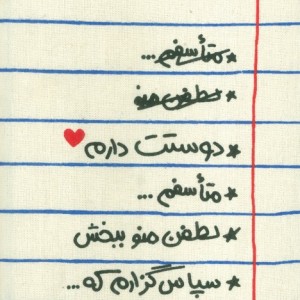 * متأسفم...
* لطفن منو
* دوستت دارم
* متأسفم ...
* لطفن منو ببخش
* سپاس‌گزارم که...